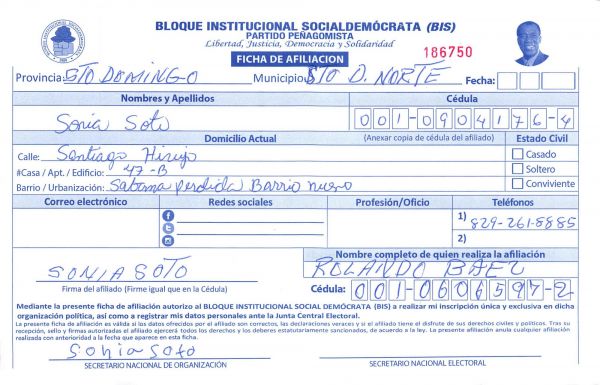 BLOQUE INSTITUCIONAL SOCIALDEMÓCRATA (BIS)
PARTIDO PEÑAGOMISTA
Libertad, Justicia, Democracia y Solidaridad
FICHA DE AFILIACION
186750
Provincia: STO DOMINGO Municipio: STO D. NORTE Fecha:
Nombres y Apellidos Cédula
Sonia Soto 001-0904176-4
Domicilio Actual (Anexar copia de cédula del afiliado) Estado Civil
Calle: Santiago Hirujo Casado
#Casa / Apt. / Edificio: 47-B Soltero
Barrio / Urbanización: Sabana perdida Barrio nuevo Conviviente
Correo electrónico Redes sociales Profesión/Oficio Teléfonos
1) 829-261-8885
2)
SONIA SOTO
Firma del afiliado (Firme igual que en la Cédula)
Nombre completo de quien realiza la afiliación
ROLANDO BAEZ
Cédula: 001-0606597-2
Mediante la presente ficha de afiliación autorizo al BLOQUE INSTITUCIONAL SOCIAL DEMÓCRATA (BIS) a realizar mi inscripción única y exclusiva en dicha
organización política, así como a registrar mis datos personales ante la Junta Central Electoral.
La presente ficha de afiliación es válida si los datos ofrecidos por el afiliado son correctos, las declaraciones veraces y si el afiliado tiene el disfrute de sus derechos civiles y políticos. Tras su
recepción, sello y firmas autorizadas el afiliado ejercerá todos los derechos y los deberes estatutariamente sancionados, de acuerdo a la ley. La presente afiliación anula cualquier afiliación
realizada con anterioridad a la fecha que aparece en esta ficha.
Sonia Soto
SECRETARIO NACIONAL DE ORGANIZACIÓN SECRETARIO NACIONAL ELECTORAL